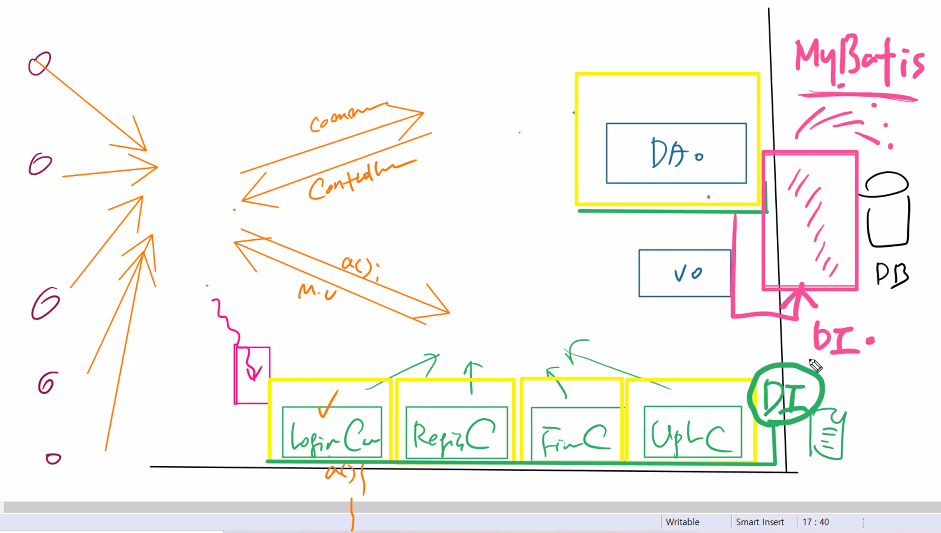 MyBatis
Comman
Controller
DAo
a();
M.V
VO
DB
DI.
DI
Login Con
Regis C
Fin C
Upl C
a();
Writable
Smart Insert
17 : 40